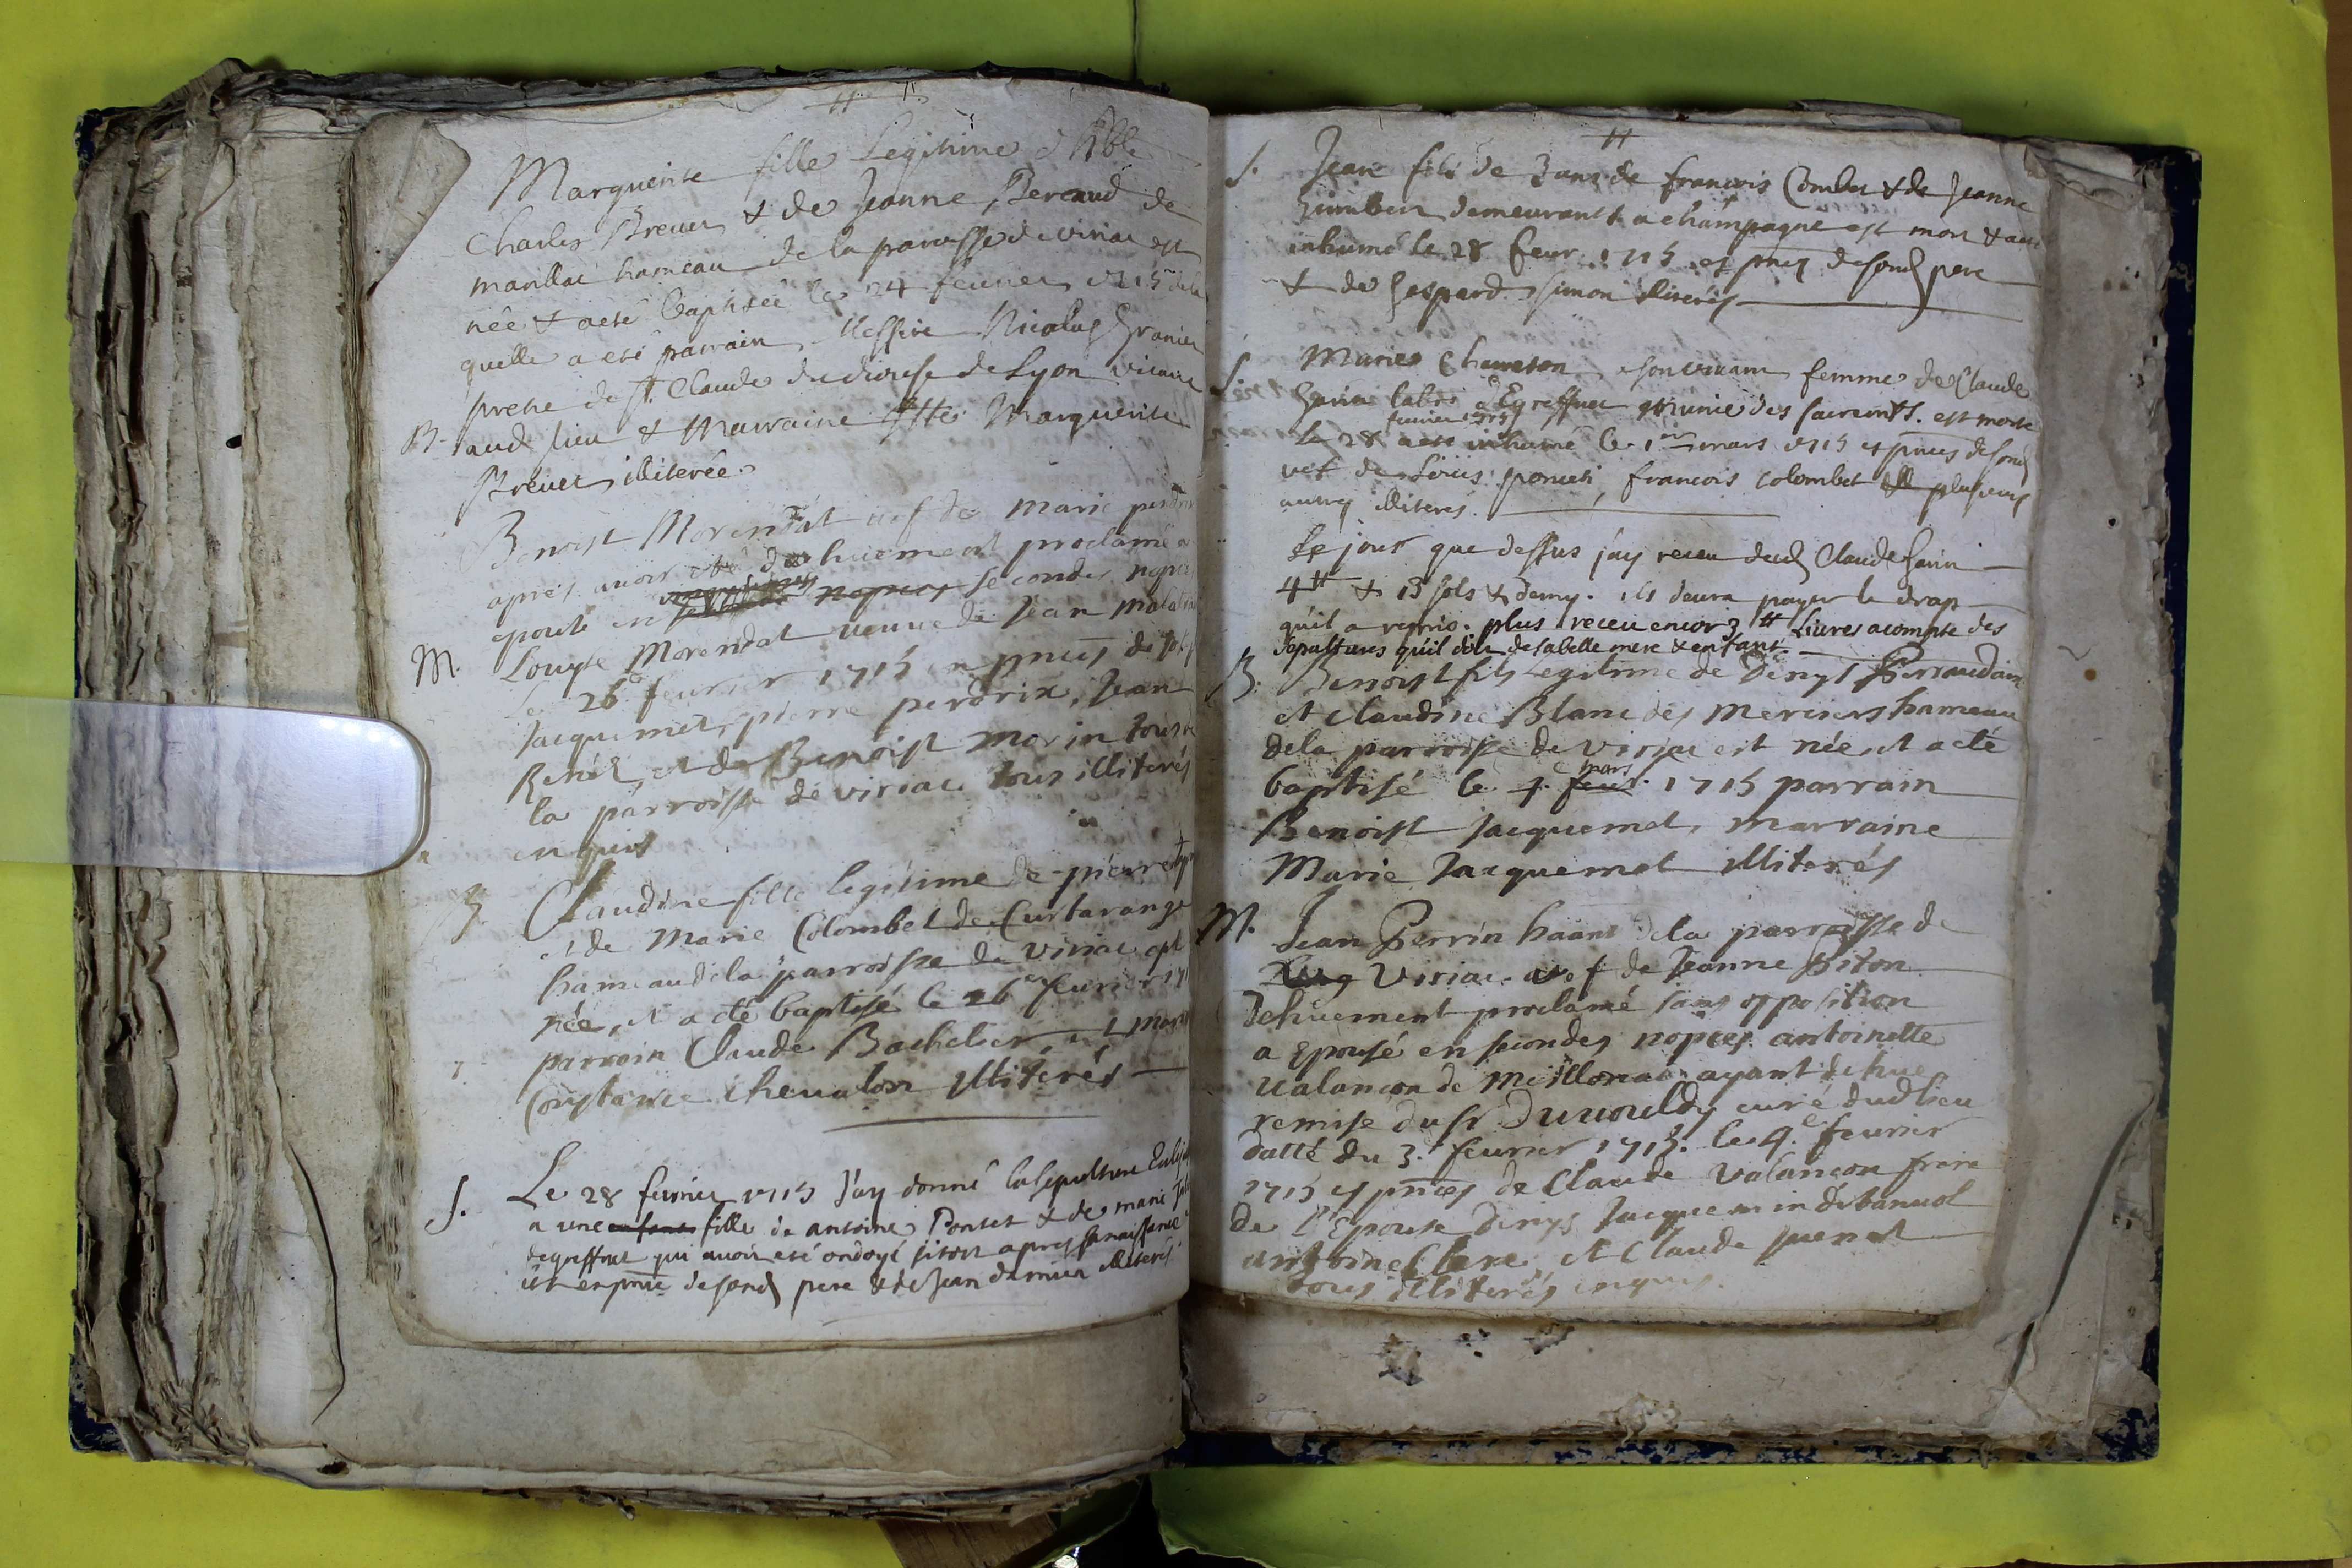 Marguerite fille Legitime d'hble
Charles Brevet & de Jeanne Beraud de
marillat hameau de la paroisse de viriac est
née & a esté baptisée le 24 fevrier 1715 de la
quelle a esté parrain Messire Nicolas Granier
pretre de St Claude du diocese de Lyon vicaire
B. aud lieu & Marraine Marguerite
Brevet illiterée
Benoist Morendat vef de marie perdrix
apres avoir eté dehuement proclamé a
epousé en secondes nopces
M. Louyse Morendat veuve de Jean
Le 26e fevrier 1715 en pnces de
Jacquemet, pierre perdrix, Jean
et de Benoist morin tous de
la parroisse de viriac tous illiterés
enquis
B. Claudine fille legitime de pierre
et de Marie Colombet de Curtarange
hameau de la parroisse de Viriac est
née, et a eté baptisé le 26e fevrier 171
parrain Claude Bachelier, et marr
Constance Chevalon illiterés
S. Le 28 fevrier 1715 J'ay donné la sepulture
a une enfant fille de antoine Ponset & de marie
degreffnet qui avoit esté ondoyé sitost apres sa naissance
en pnce de sond pere & de Jean illiterés
S. Jean fils de 3 ans de francois Combet & de Jeanne
Humbert demeurants a champagne est mort & a eté
inhumé le 28 fevr. 1715 es pnces de sond pere
& de Gaspard Simon illiterés
S. Marie a son vivant femme de Claude
Garin munie des sacremts. est morte
fevrier 1715
Le 28 a esté inhumé le 1er mars 1715 es pnces de sond
vef de Louis poncet, francois Colombet & plusieurs
autres illiterés.
Le jour que dessus j'ay receu dud Claude Garin
4 ₶ & 13 sols & demy. ils devra payer le drap
qu'il a repris. plus receu encor 3 ₶ Livres acompte des
sepultures qu'il doit de sa belle mere & enfant.
B. Benoist fils Legitime de Denys Perraudin
et Claudine Blanc des merciers hameau
de la parroisse de viriac est née et a eté
mars
baptisé le 4. fevr. 1715 parrain
Benoist Jacquemet, marraine
Marie Jacquemet illiterés
M. Jean Perrin haant de la parroisse de
Viriac. vef de Jeanne Piton
Dehuement proclamé sans opposition
a Epousé en secondes nopces antoinette
valancon de meillonas ayant dehue
remise du sr Duvouldy curé dud lieu
datté du 3. fevrier 1715. le 4e fevrier
1715 es pnces de Claude Valançon frere
de l'Epouse Denys Jacquemin
antoine Clere, et Claude
tous illiterés enquis.